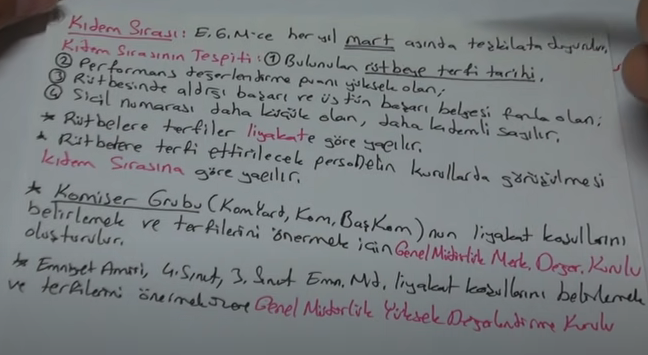 Kıdem Sırası: E.G.M-ce her yıl mart ayında teşkilata duyurulur.
Kıdem Sırasının Tespiti: ① Bulunulan rütbeye terfi tarihi,
② Performans değerlendirme puanı yüksek olan,
③ Rütbesinde aldığı başarı ve üstün başarı belgesi fazla olan;
④ Sicil numarası daha küçük olan, daha kıdemli sayılır.
* Rütbelere terfiler liyakate göre yapılır.
* Rütbelere terfi ettirilecek personelin kurullarda görüşülmesi
kıdem sırasına göre yapılır.
* Komiser Grubu (Kom Yard, Kom, Baş Kom) nun liyakat koşullarını
belirlemek ve terfilerini önermek için Genel Müdürlük Merk. Değer. Kurulu
oluşturulur.
* Emniyet Amiri, 4. Sınıf, 3. Sınıf Emn. Müd. liyakat koşullarını belirlemek
ve terfilerini önermek üzere Genel Müdürlük Yüksek Değerlendirme Kurulu